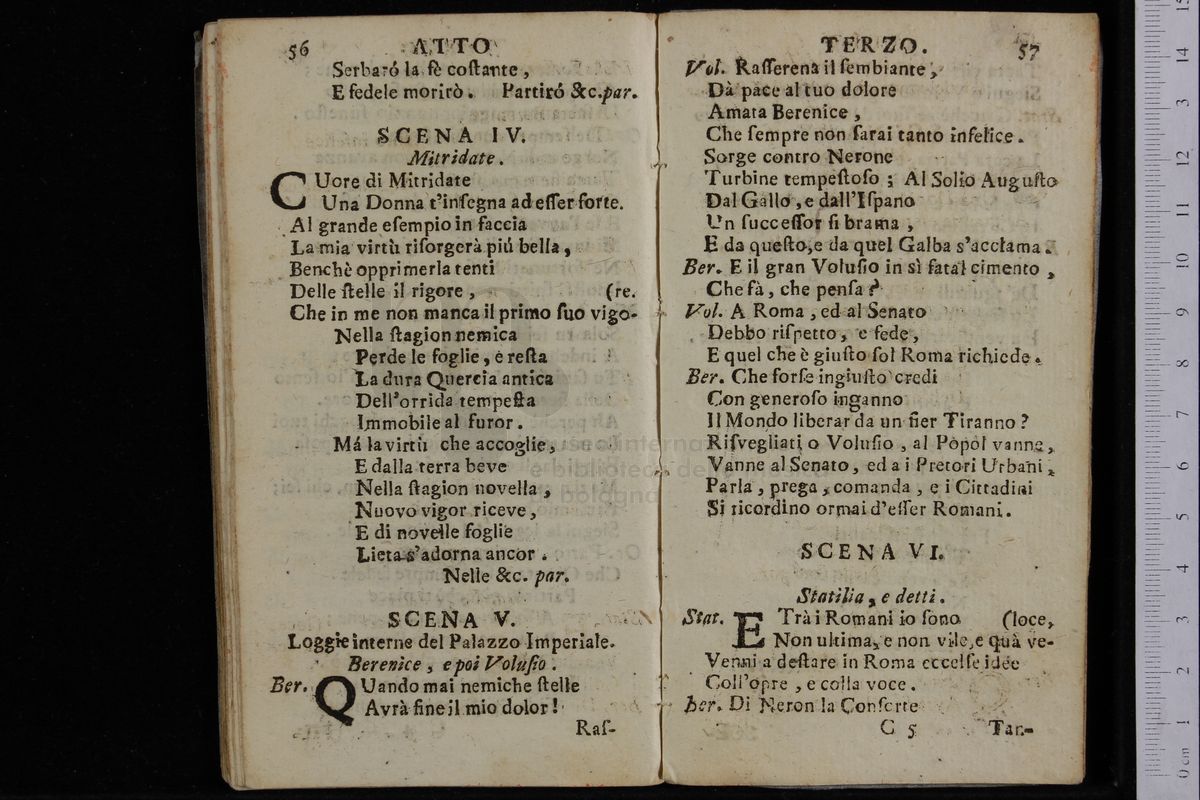 56 ATTO
Serbaró la fè coſtante ,
E fedele morirò . Partiró &c.par.
SCENA IV.
Mitridate.
CUore di Mitridate
Una Donna t'inſegna ad eſſer forte.
Al grande eſempio in faccia
La mia virtù riſorgerà piú bella ,
Benchè opprimerla tenti
Delle ſtelle il rigore , (re.
Che in me non manca il primo ſuo vigo-
Nella ſtagion nemica
Perde le foglie , e reſta
La dura Quercia antica
Dell'orrida tempeſta
Immobile al furor .
Má la virtù che accoglie ,
E dalla terra beve
Nella ſtagion novella ,
Nuovo vigor riceve ,
E di novelle foglie
Lieta s'adorna ancor .
Nelle &c. par.
SCENA V.
Loggie interne del Palazzo Imperiale.
Berenice , e poi Voluſio .
Ber. QUando mai nemiche ſtelle
Avrà fine il mio dolor !
Raſ-
TERZO. 57
Vol. Raſſerena il ſembiante ,
Dà pace al tuo dolore
Amata Berenice ,
Che ſempre non ſarai tanto infelice .
Sorge contro Nerone
Turbine tempeſtoſo ; Al Solio Auguſto
Dal Gallo , e dall'Iſpano
Un ſucceſſor ſi brama ,
E da queſto, e da quel Galba s'acclama .
Ber. E il gran Voluſio in sì fatal cimento ,
Che fà , che penſa ?
Vol. A Roma , ed al Senato
Debbo riſpetto , e fede ,
E quel che è giuſto ſol Roma richiede .
Ber. Che forſe ingiuſto credi
Con generoſo inganno
Il Mondo liberar da un fier Tiranno ?
Riſvegliati o Voluſio , al Pòpòl vanne ,
Vanne al Senato , ed a i Pretori Urbani ,
Parla , prega , comanda , e i Cittadini
Si ricordino ormai d'eſſer Romani .
SCENA VI.
Statilia , e detti .
Stat. E Trà i Romani io ſono (loce,
Non ultima, e non vile, e quà ve-
Venni a deſtare in Roma eccelſe idée
Coll'opre , e colla voce .
Ber. Di Neron la Conſorte
C 5 Tan-